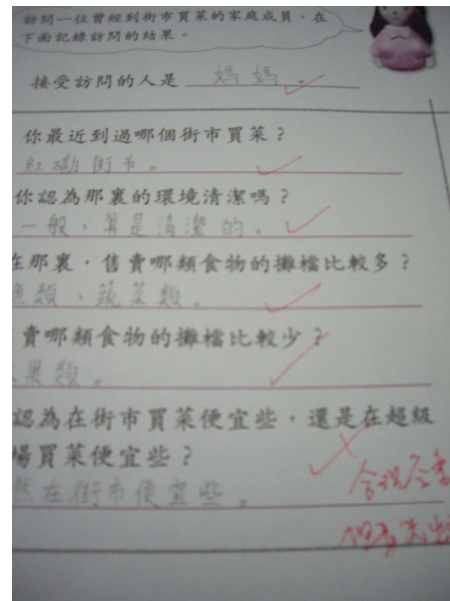 訪問一位曾經到街市買菜的家庭成員，在
下面記錄訪問的結果。
接受訪問的人是 媽媽。
你最近到過哪個街市買菜？
紅磡街市。
你認為那裏的環境清潔嗎？
一般，算是清潔的。
在那裏，售賣哪類食物的攤檔比較多？
魚類、蔬菜類。
賣哪類食物的攤檔比較少？
果類。
認為在街市買菜便宜些，還是在超級
場買菜便宜些？
然在街市便宜些。